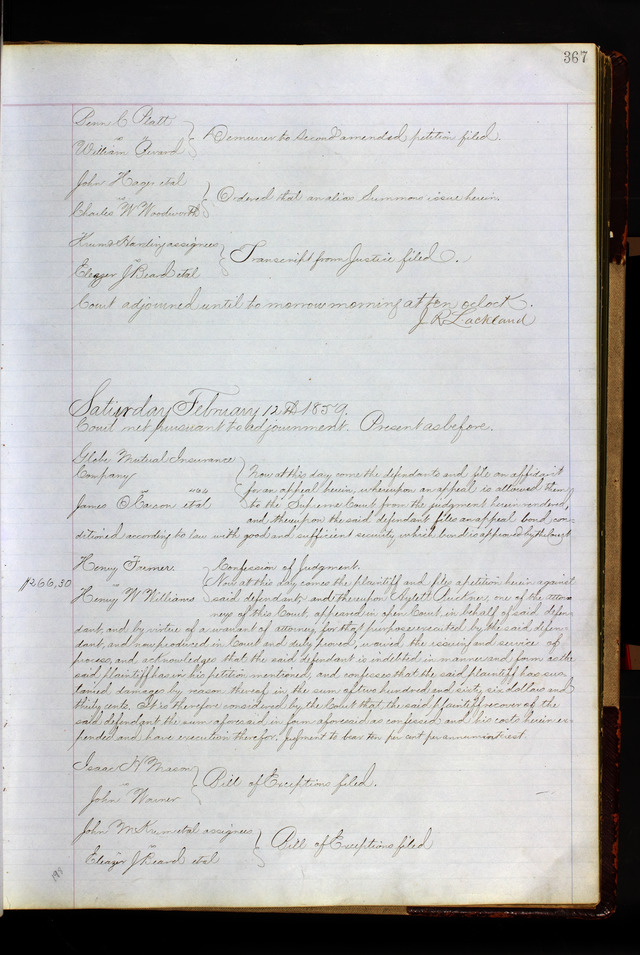 367
Penn C Platt
vs
William
Demurrer to Second amended petition filed.
John Hager etal
vs
Charles W Woodworth
Ordered that an alias Summons issue herein.
Krum & Harding assignees
vs
Eleazer J Beard etal
Transcript from Justice filed.
Court adjourned until to morrow morning at ten oclock.
J R Lackland
Saturday February 12th 1859.
Court met pursuant to adjournment. Present as before.
Globe Mutual Insurance
Company
vs
James O Carson etal
Now at this day come the defendants and file an affidavit
for an appeal herein, whereupon an appeal is allowed them
to the Supreme Court from the judgment herein rendered,
and thereupon the said defendant files an appeal bond con-
ditioned according to law with good and sufficient security which bond is approved by the Court
Henry Turner
vs
Henry W Williams
$266,30
Confession of Judgment.
Now at this day comes the plaintiff and files a petition herein against
said defendant, and thereupon Aylett Buckner, one of the attor-
neys of this Court, appeared in open Court in behalf of said defen
dant, and by virtue of a warrant of attorney for that purpose executed by the said defen-
dant, and now produced in Court and duly proved, waived the issuing and service of
process, and acknowledges that the said defendant is indebted in manner and form as the
said plaintiff has in his petition mentioned, and confesses that the said plaintiff has sus-
tained damages by reason thereof in the sum of two hundred and sixty six dollars and
thirty cents. It is therefore considered by the Court that the said plaintiff recover of the
said defendant the sum aforesaid in form aforesaid as confessed and his costs herein ex-
pended and have execution therefor. Judgment to bear ten per cent per annum interest.
Isaac H Mason
vs
John Warner
Bill of Exceptions filed.
John M Krum etal assignees
vs
Eleazer J Beard etal
Bill of Exceptions filed